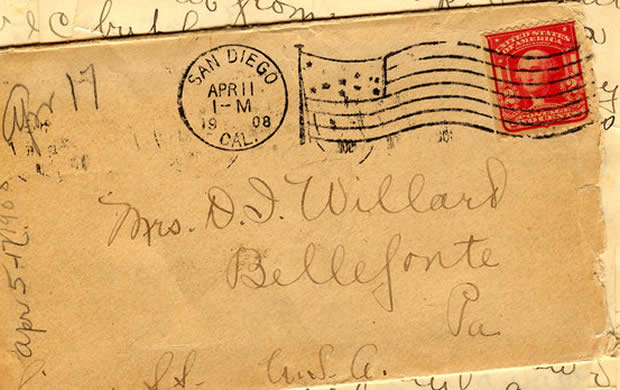 SAN DIEGO
APR 11
1-M
1908
CAL.
UNITED STATES
OF AMERICA
Apr 17
apr 5-17, 1908
Mrs. D. I. Willard
Bellefonte
Pa
U.S.A.